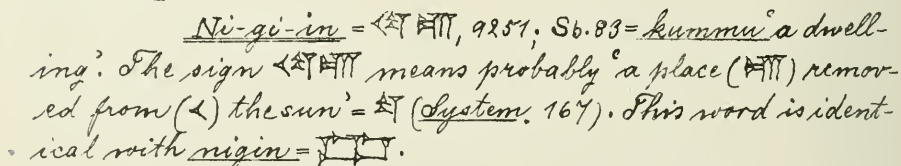 Ni-gi-in = 𒌋𒌓𒆤, 9251; Sb. 83 = kummu 'a dwell-
ing'. The sign means probably 'a place ( ) remov-
ed from (𒌋) the sun' = 𒌓 (System, 167). This word is ident-
ical with nigin = 𒆸𒆸.